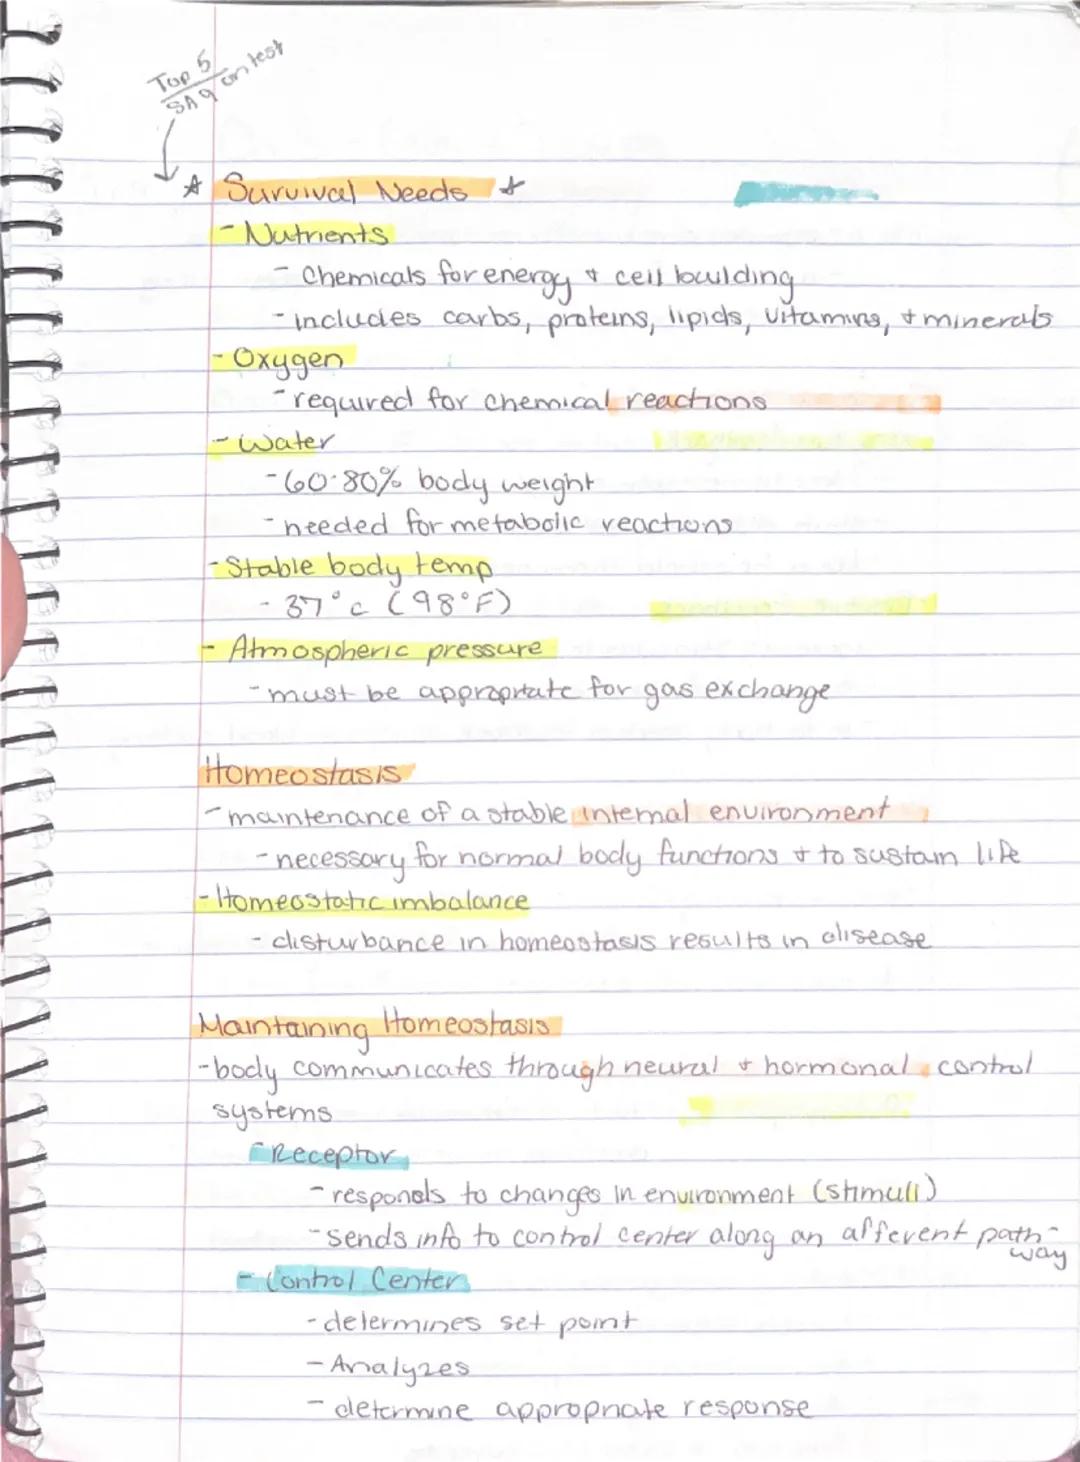 Top 5
SAq on test
☆ Survival Needs ☆
- Nutrients
- Chemicals for energy + cell building
- includes carbs, proteins, lipids, vitamins, + minerals
- Oxygen
- required for chemical reactions
- Water
- 60-80% body weight
- needed for metabolic reactions
- Stable body temp
- 37°c (98°F)
- Atmospheric pressure
- must be appropriate for gas exchange
Homeostasis
- maintenance of a stable internal environment
- necessary for normal body functions + to sustain life
- Homeostatic imbalance
- disturbance in homeostasis results in disease
Maintaining Homeostasis
- body communicates through neural + hormonal control
systems
- Receptor
- responds to changes in environment (stimuli)
- sends info to control center along an afferent path-
way
- Control Center
- determines set point
- Analyzes
- determine appropriate response